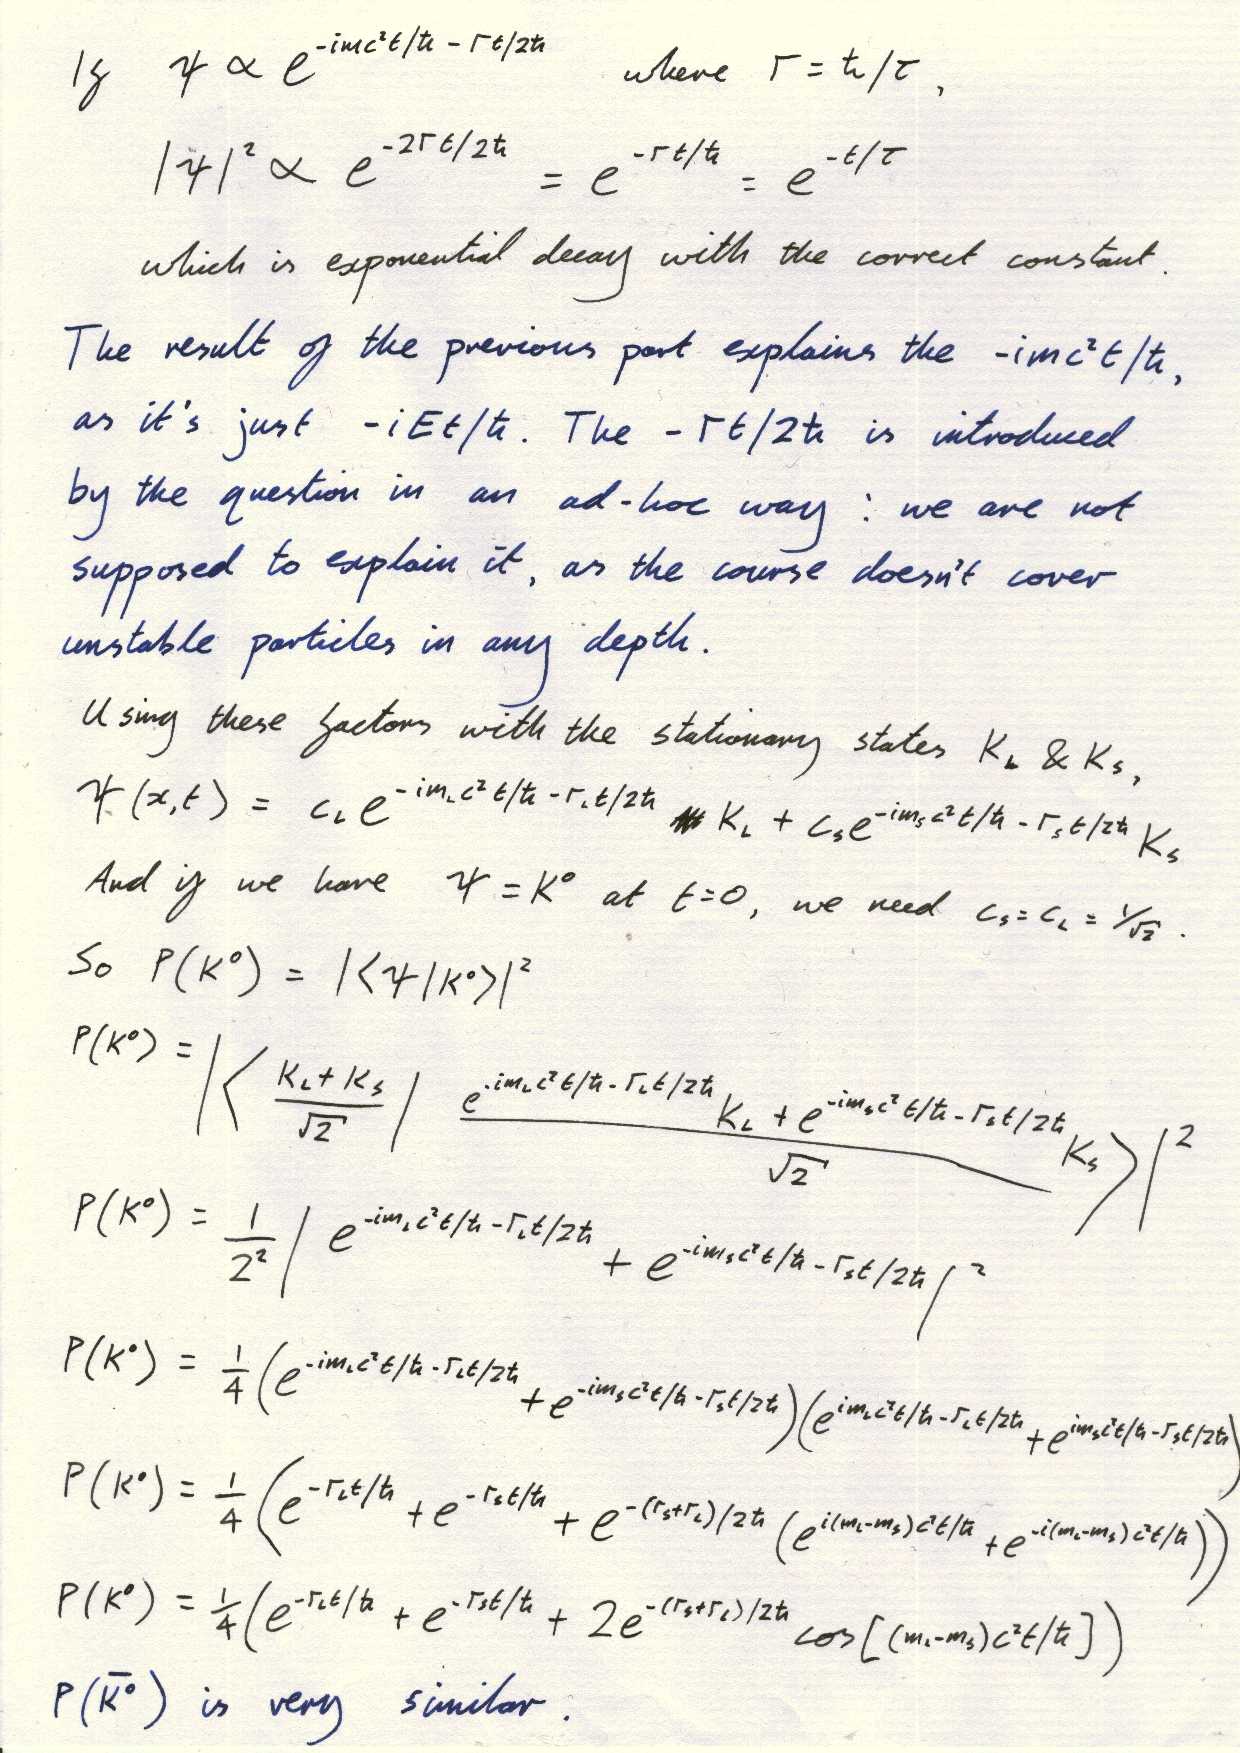 If ψ ∝ e^{-imc²t/ħ - Γt/2ħ} where Γ = ħ/τ,
|ψ|² ∝ e^{-2Γt/2ħ} = e^{-Γt/ħ} = e^{-t/τ}
which is exponential decay with the correct constant.
The result of the previous part explains the -imc²t/ħ,
as it's just -iEt/ħ. The -Γt/2ħ is introduced
by the question in an ad-hoc way: we are not
supposed to explain it, as the course doesn't cover
unstable particles in any depth.
Using these factors with the stationary states K_L & K_S,
Ψ(x,t) = c_L e^{-im_Lc²t/ħ - Γ_Lt/2ħ} K_L + c_S e^{-im_Sc²t/ħ - Γ_St/2ħ} K_S
And if we have Ψ = K⁰ at t=0, we need c_S = c_L = 1/√2.
So P(K⁰) = |⟨Ψ|K⁰⟩|²
P(K⁰) = |⟨ (K_L + K_S)/√2 | (e^{-im_Lc²t/ħ - Γ_Lt/2ħ} K_L + e^{-im_Sc²t/ħ - Γ_St/2ħ} K_S)/√2 ⟩|²
P(K⁰) = 1/2² | e^{-im_Lc²t/ħ - Γ_Lt/2ħ} + e^{-im_Sc²t/ħ - Γ_St/2ħ} |²
P(K⁰) = 1/4 (e^{-im_Lc²t/ħ - Γ_Lt/2ħ} + e^{-im_Sc²t/ħ - Γ_St/2ħ})(e^{im_Lc²t/ħ - Γ_Lt/2ħ} + e^{im_Sc²t/ħ - Γ_St/2ħ})
P(K⁰) = 1/4 (e^{-Γ_Lt/ħ} + e^{-Γ_St/ħ} + e^{-(Γ_S+Γ_L)/2ħ} (e^{i(m_L-m_S)c²t/ħ} + e^{-i(m_L-m_S)c²t/ħ}))
P(K⁰) = 1/4 (e^{-Γ_Lt/ħ} + e^{-Γ_St/ħ} + 2e^{-(Γ_S+Γ_L)/2ħ} cos[(m_L-m_S)c²t/ħ])
P(K̄⁰) is very similar.